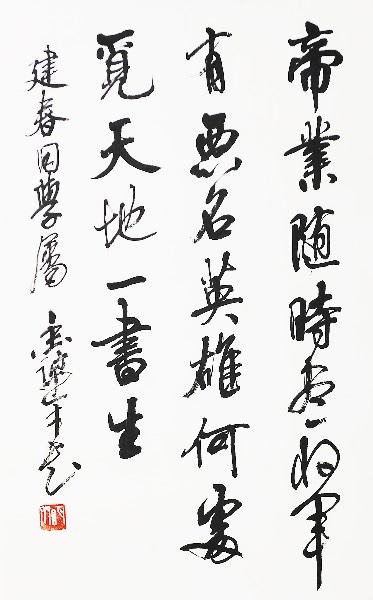 帝業随時尽将軍
有悪名英雄何處
覓天地一書生
建春同學屬